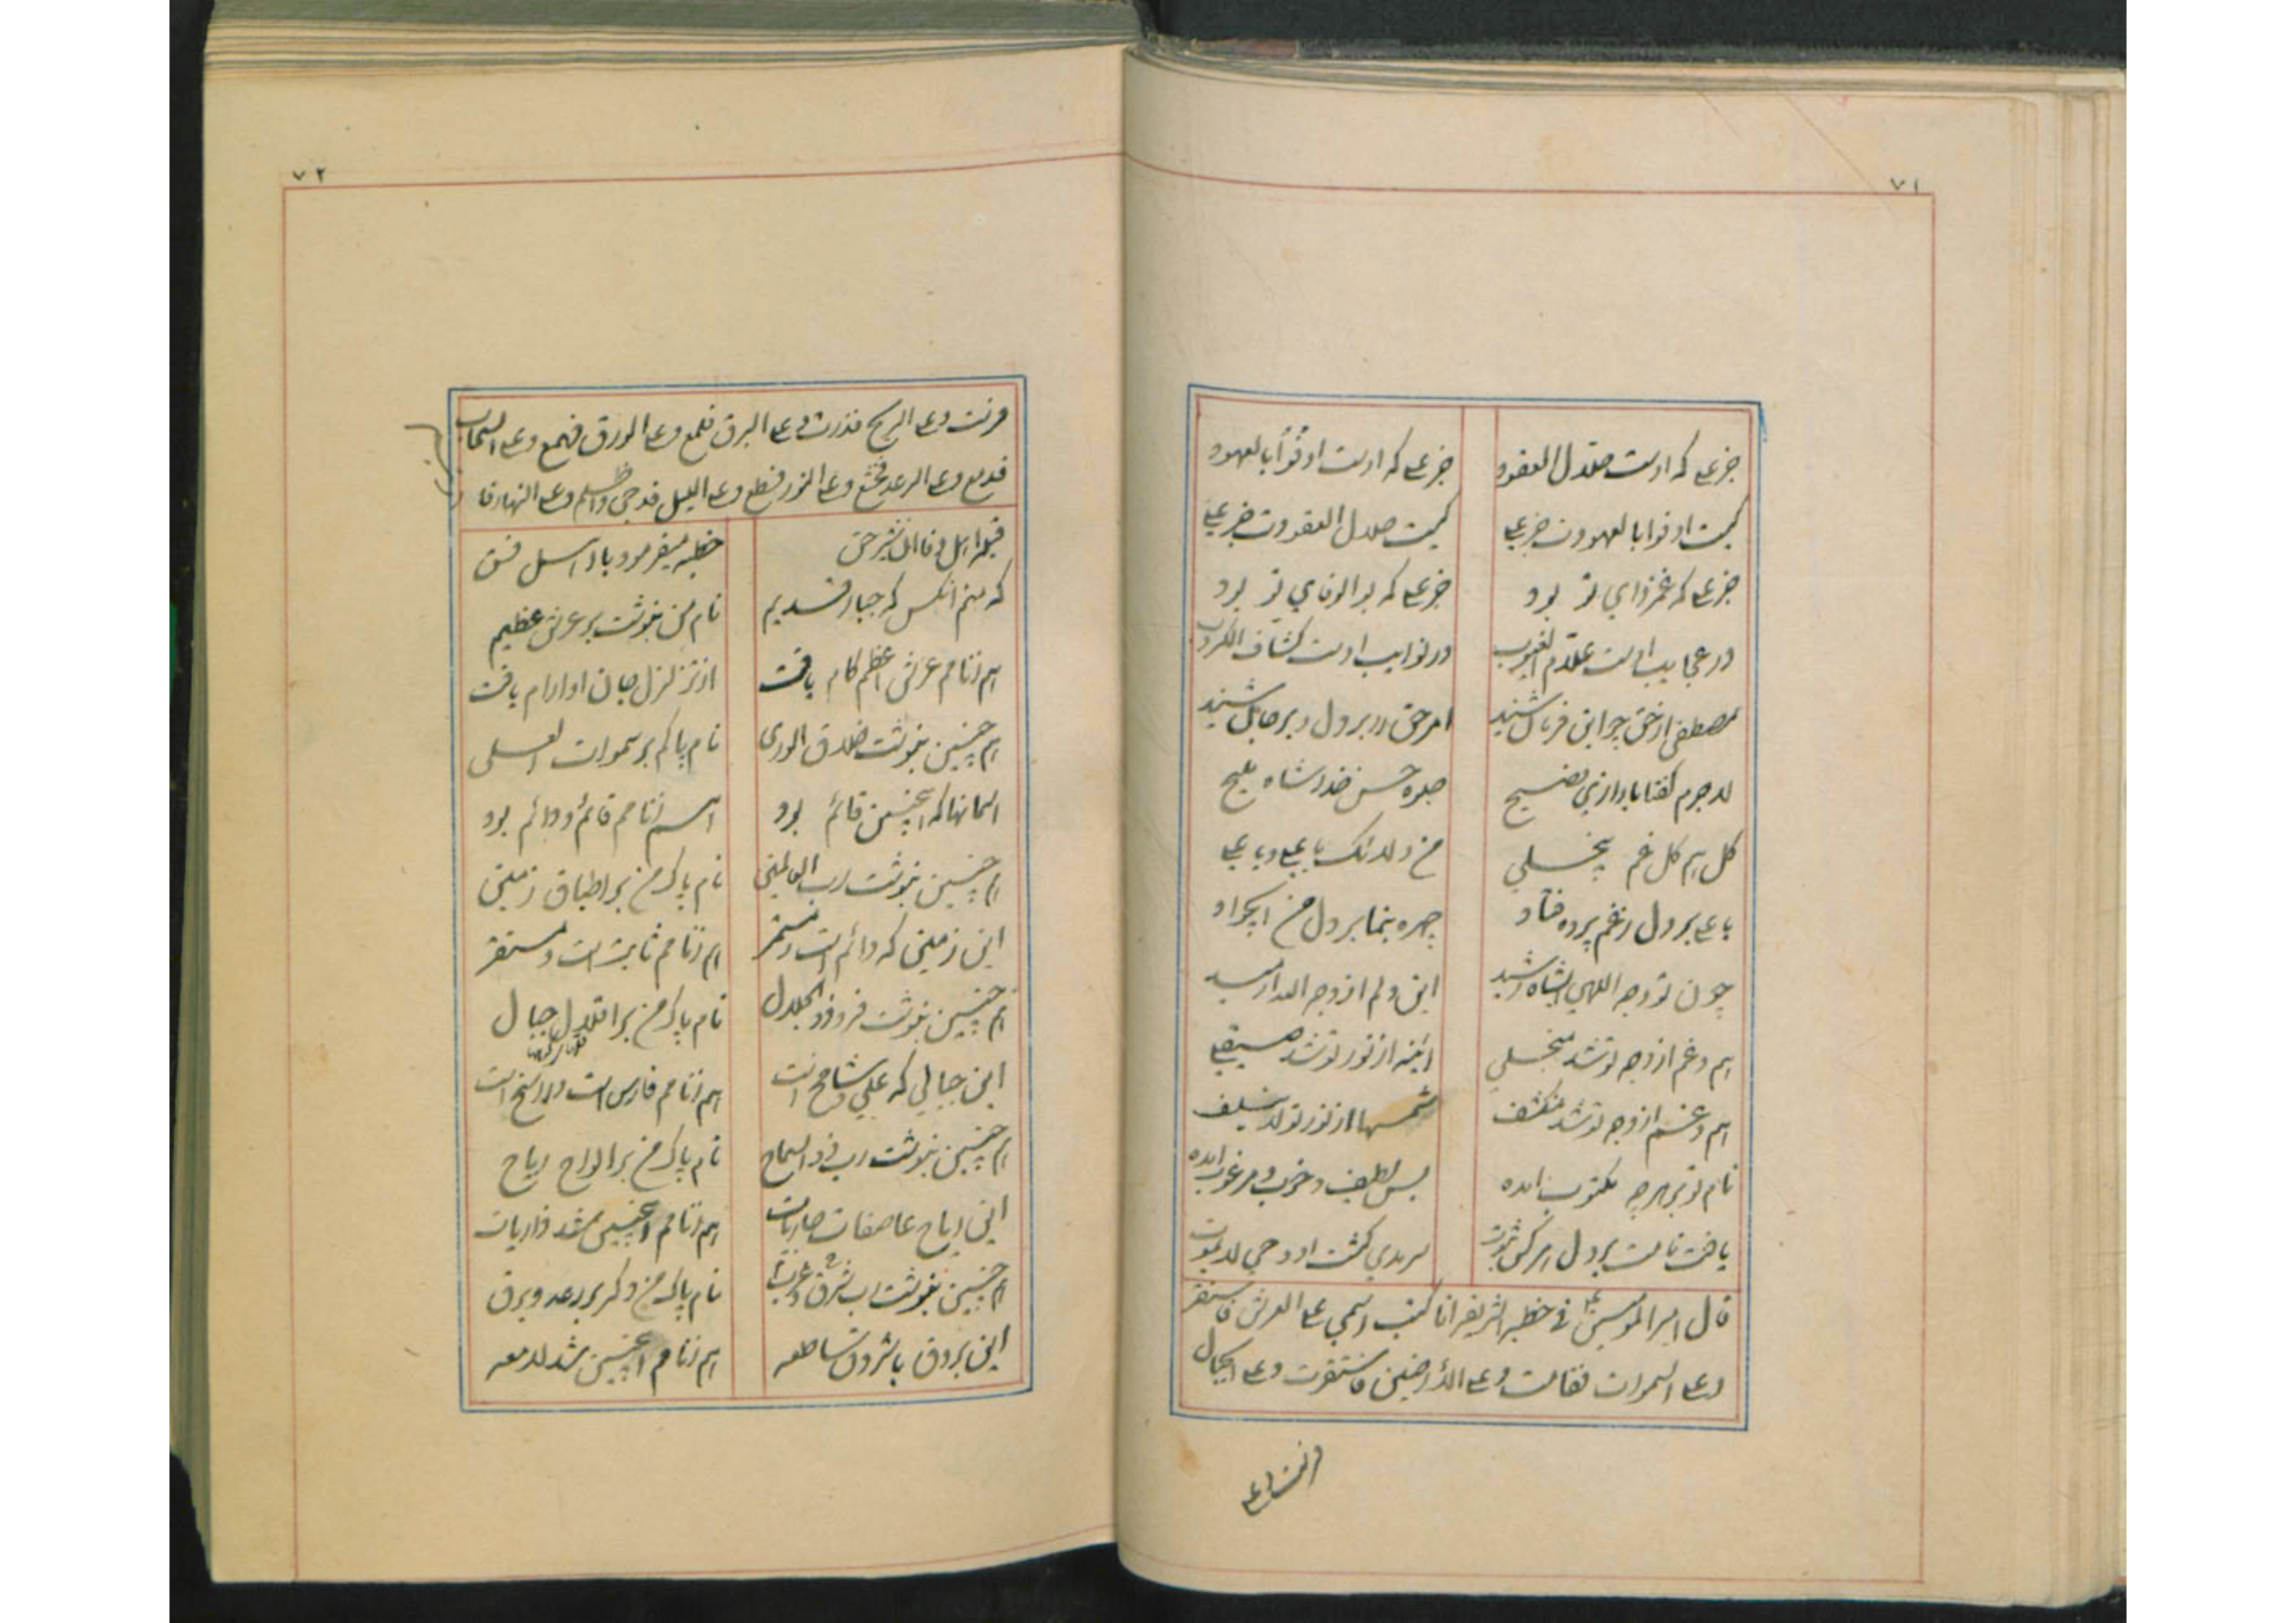 ۷۱
جز علی که اوست حلال العقود
جز علی که اوست اوفوا بالعهود
کیست اوفوا بالعهودت جز علی
کیست حلال العقودت جز علی
جز علی که غمزدای تو بود
جز علی که بوالوفای تو بود
در عجایب اوست علام الغیوب
در نوایب اوست کشاف الکروب
مصطفی از حق چو این فرمان شنید
امر حق در بر دل و بر جان شنید
لاجرم گفتا بآواز فصیح
جلوه حسن خدا شاه ملیح
کل هم کل غم ینجلی
من ولائک یا علی و یا علی
یا علی بر دل ز غم پرده فتاد
چهره بنما بر دل من ای جواد
چون تو وجه اللهی ای شاه رشید
این دلم از وجه الله آرمید
هم و غم از وجه تو شد منجلی
آینه از نور تو شد صیقلی
هم و غم از وجه تو شد منکشف
شمسها از نور تو لا ینکسف
نام تو بر هر چه مکتوب آمده
بس لطیف و خوب و مرغوب آمده
یافت نامت بر دل هر کس ثبوت
سرمدی گشت او و حی لا یموت
قال امیر المومنین ع فی خطبه الشریفه انا کتب اسمی علی العرش فاستقر
وعلی السموات فقامت وعلی الأرضین فاستقرت وعلی الجبال
فرست وعلی
۷۲
فرست وعلی الریح فذرت وعلی البرق فلمع وعلی الورق فهمع وعلی السحاب
فدمع وعلی الرعد فخشع وعلی النور فسطع وعلی اللیل فدجی واظلم وعلی النهار فا
قبله اهل وفا آن شیر حق
خطبه میفرمود با اهل فسق
که منم آنکس که جبار قدیم
نام من بنوشت بر عرش عظیم
هم ز نامم عرش اعظم کام یافت
از تزلزل جان او آرام یافت
هم چنین بنوشت خلاق الوری
نام پاکم بر سموات العلی
آسمانها که اینچنین قائم بود
هم ز نامم قائم و دائم بود
هم چنین بنوشت رب العالمین
نام پاک من بر اطباق زمین
این زمینی که دائم است و مستمر
هم ز نامم ثابت است و مستقر
هم چنین بنوشت فرد ذو الجلال
نام پاک من بر اقلال جبال
این جبالی که علی شامخ است
هم ز نامم فارس است و راسخ است
هم چنین بنوشت رب ذو السماح
نام پاک من بر الواح ریاح
این ریاح عاصفات جاریات
هم ز نامم اینچنین شد ذاریات
هم چنین بنوشت رب شرق و غرب
نام پاک من دگر بر رعد و برق
این بروق با شروق ساطعه
هم ز نامم اینچنین شد لامعه